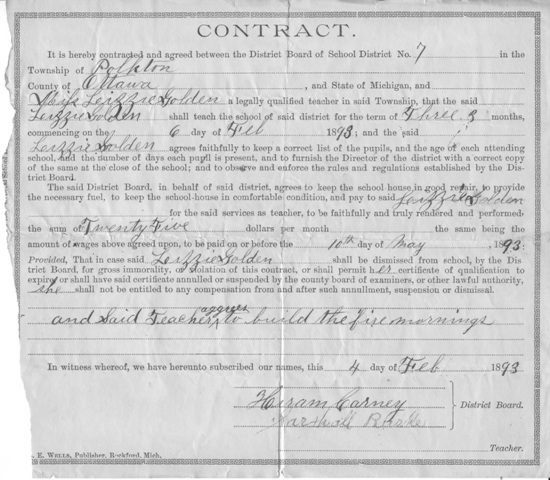 CONTRACT.
It is hereby contracted and agreed between the District Board of School District No. 7 in the
Township of Polkton
County of Ottawa, and State of Michigan, and
Miss Leizzie Golden a legally qualified teacher in said Township, that the said
Leizzie Golden shall teach the school of said district for the term of Three 3 months,
commencing on the 6 day of Feb 1893, and the said
Leizzie Golden agrees faithfully to keep a correct list of the pupils, and the age of each attending
school, and the number of days each pupil is present, and to furnish the Director of the district with a correct copy
of the same at the close of the school; and to observe and enforce the rules and regulations established by the Dis-
trict Board.
The said District Board, in behalf of said district, agrees to keep the school house in good repair, to provide
the necessary fuel, to keep the school-house in comfortable condition, and pay to said Leizzie Golden
for the said services as teacher, to be faithfully and truly rendered and performed
the sum of Twenty Five dollars per month being the same
amount of wages above agreed upon, to be paid on or before the 10th day of May 1893.
Provided, That in case said Leizzie Golden shall be dismissed from school, by the Dis-
trict Board, for gross immorality, or violation of this contract, or shall permit er certificate of qualification to
expire, or shall have said certificate annulled or suspended by the county board of examiners, or other lawful authority,
she shall not be entitled to any compensation from and after such annullment, suspension or dismissal.
and Said Teacher aggrees to build the fire mornings
In witness whereof, we have hereunto subscribed our names, this 4 day of Feb 1893
Hiram Carney
District Board.
Marshall
Teacher.
E. WELLS, Publisher, Rockford, Mich.